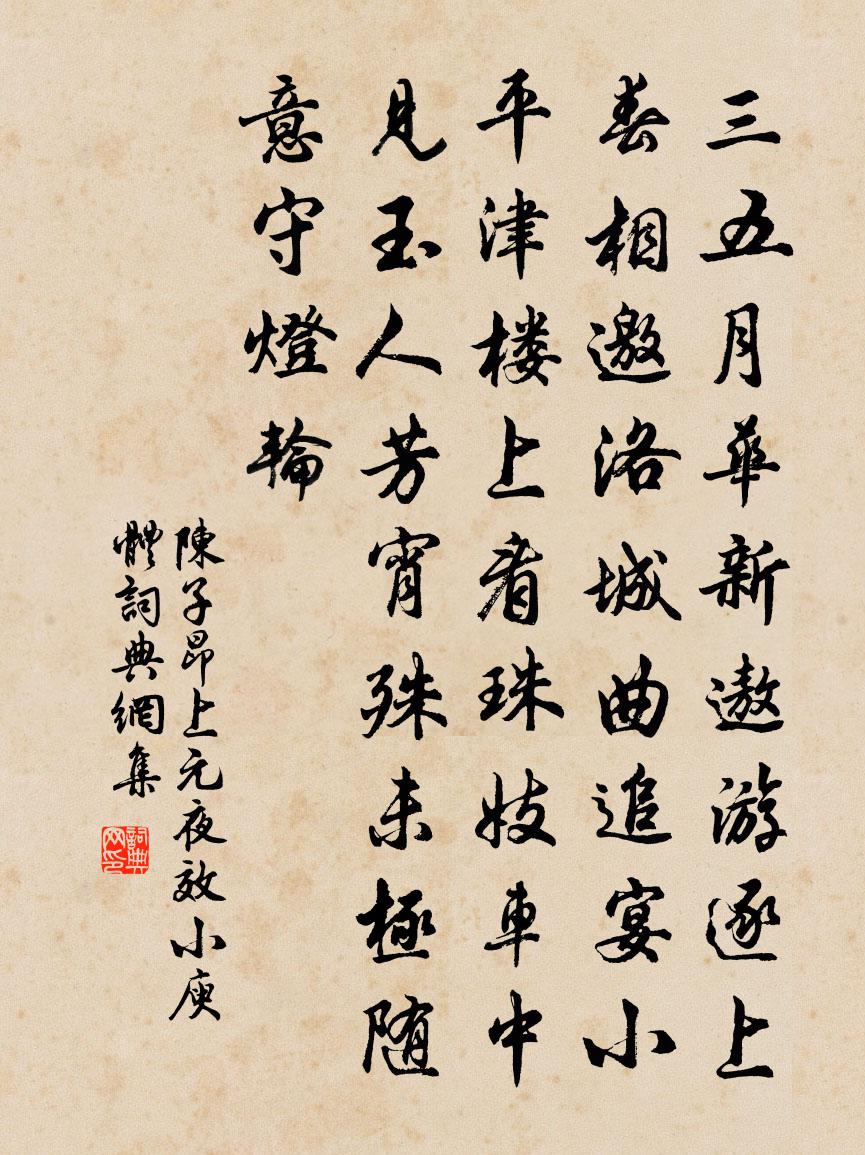 三五月華新遨游逐上
春相邀洛城曲追宴小
平津楼上看珠妓車中
見玉人芳宵殊未極随
意守燈輪
陳子昂上元夜效小庾
體詞典網集
詞典
网印